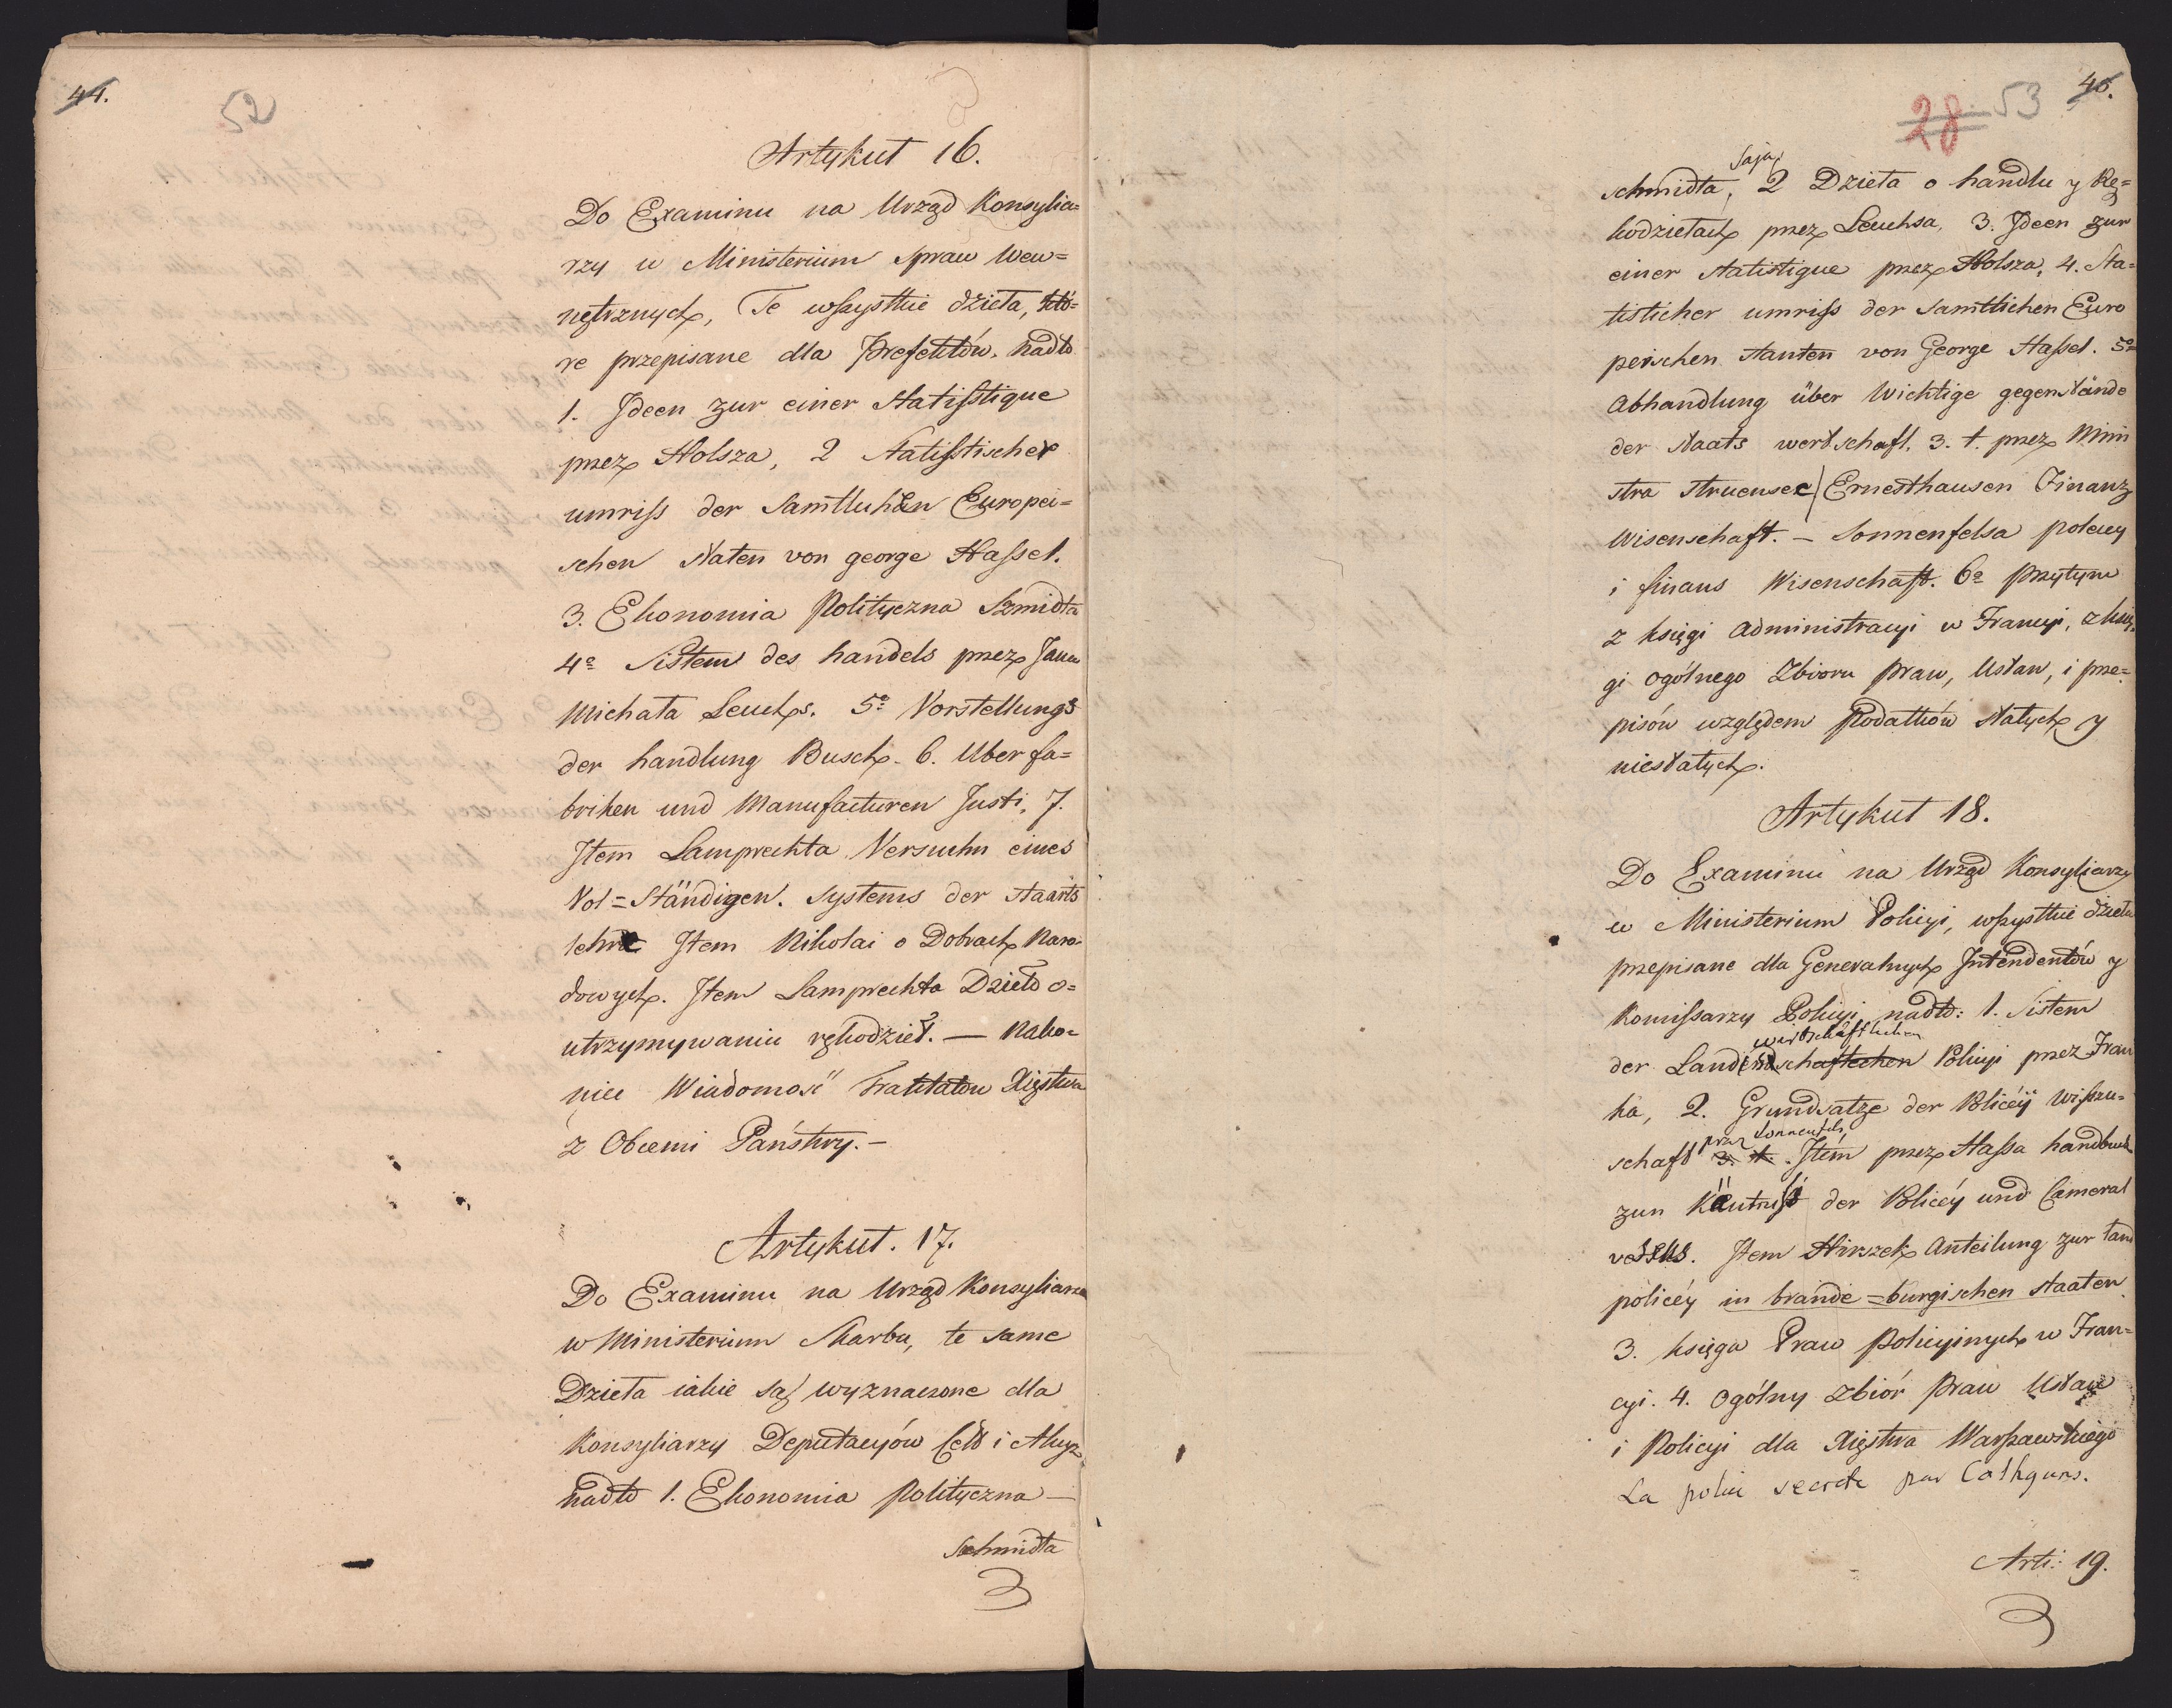 44.
52
Artykuł 16.
Do Examinu na Urząd Konsylia=
rzy w Ministerium Spraw Wew=
nętrznych, Te wszystkie dzieła, któ=
re przepisane dla Prefektów, nadto
1. Jdeen zur einer Statisstique
przez Holsza, 2 Statisstischer
umriss der Samtluhen Europei=
schen Staten von george Hassel.
3. Ekonomia Polityczna Szmidta
4o Sistem des handels przez Jana
Michała Leuchs. 5o Vorstellungs
der handlung Busch. 6. Uber fa=
briken und Manufacturen Justi, 7.
Jtem Lamprechta Versuchn eines
Vol=Ständigen. Systems der Staats
lehre Jtem Nikolai o Dobrach Naro=
dowych. Jtem Lamprechta Dzieło o=
utrzymywaniu rękodzieł. — Nako=
niec Wiadomość Traktatów Xięstwa
z Obcemi Państwy. —
Artykuł. 17.
Do Examinu na Urząd Konsyliarza
w Ministerium Skarbu, te same
Dzieła iakie są wyznaczone dla
Konsyliarzy Deputacyów Ceł i Akcyz
nadto 1. Ekonomia Polityczna —
Schmidta
45.
28 53
Saja
schmidta, 2 Dzieła o handlu y Rę=
kodziełach przez Leuchsa, 3. Jdeen zur
einer Statistique przez Holsza, 4. Sta=
tisticher umriss der Samtlichen Euro
peischen Stanten von George Hassel. 5o
Abhandlung über Wichtige gegenstände
der Staats wertschaft. 3. t. przez Mini
stra Struensee/ Ernesthausen Finanz
Wisenschaft. — Sonnenfelsa policey
i finans Wisenschaft. 6o Przytym
z księgi Administracyi w Francyi, z księ=
gi ogólnego Zbioru Praw, Ustaw, i prze=
pisów względem Podatków stałych y
niestałych.
Artykuł 18.
Do Examinu na Urząd Konsyliarzy
w Ministerium Policyi, wszystkie dzieła
przepisane dla Generalnych Jntendentów y
Komissarzy Policyi nadto: 1. Sistem
wirtschaftlichen
der Land schaftlechen Policyi przez Fran
ka, 2. Grundsatze der Policéÿ Wissen=
przez Sonnenfels
schaft 3. t. Jtem przez Hassa handbuch
zun der Policéy und Cameral
Jtem Hirszek Anteilung zur Land
policéy in brande=burgischen Staaten
3. księga Praw Policyinych w Fran=
cyi. 4. Ogólny Zbiór Praw Ustaw
i Policyi dla Xięstwa Warszawskiego
La police secrete par
Arti: 19.